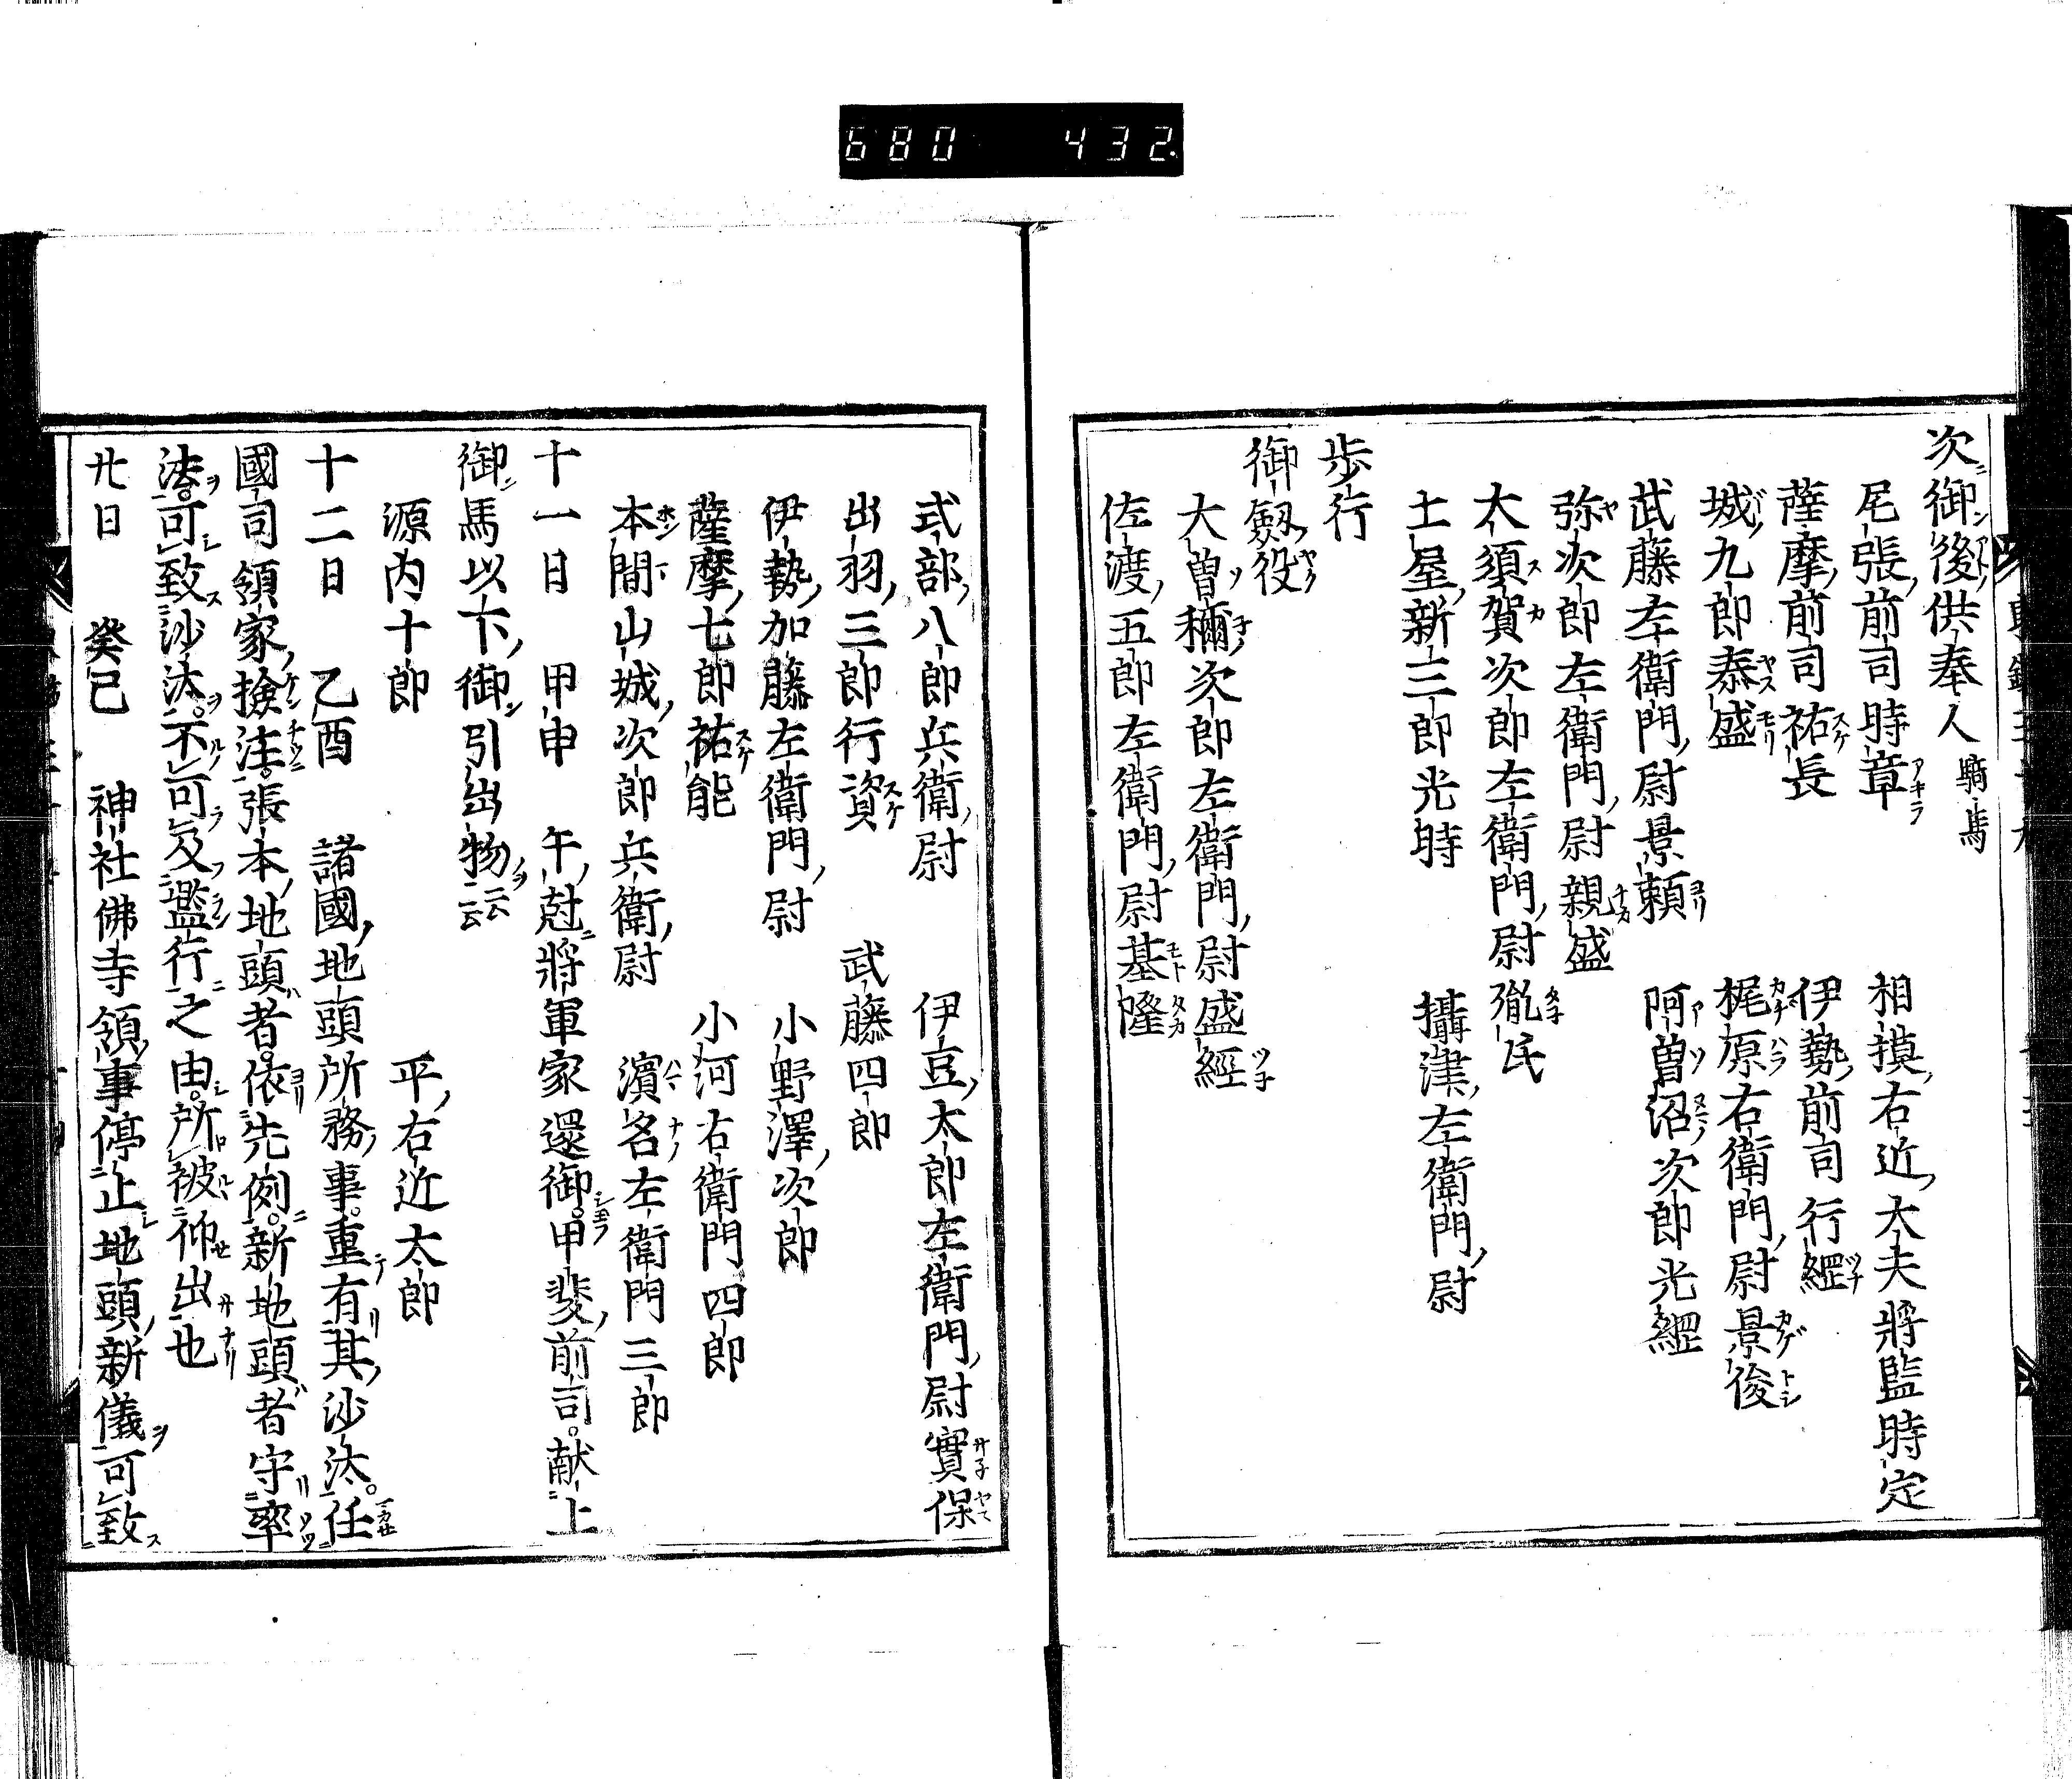 680 432
次御後供奉人 騎馬
尾張前司時章 相摸右近大夫將監時定
薩摩前司祐長 伊勢前司行經
城九郎泰盛 梶原右衛門尉景俊
武藤左衛門尉景頼 阿曽沼次郎光綱
弥次郎左衛門尉親盛
大須賀次郎左衛門尉胤氏
土屋新三郎光時 攝津左衛門尉
歩行
御劔役
大曽禰次郎左衛門尉盛經
佐渡五郎左衛門尉基隆
式部八郎兵衛尉 伊豆太郎左衛門尉實保
出羽三郎行資 武藤四郎
伊勢加藤左衛門尉 小野澤次郎
薩摩七郎祐能 小河右衛門四郎
本間山城次郎兵衛尉 濱名左衛門三郎
十一日 甲申 午尅將軍家還御甲斐前司献上
御馬以下御引出物云云
源内十郎 平右近太郎
十二日 乙酉 諸國地頭所務事重有其沙汰任
國司領家撿注張本地頭者依先例新地頭者守率
法可致沙汰不可及濫行之由所被仰出也
廿日 癸巳 神社佛寺領事停止地頭新儀可致